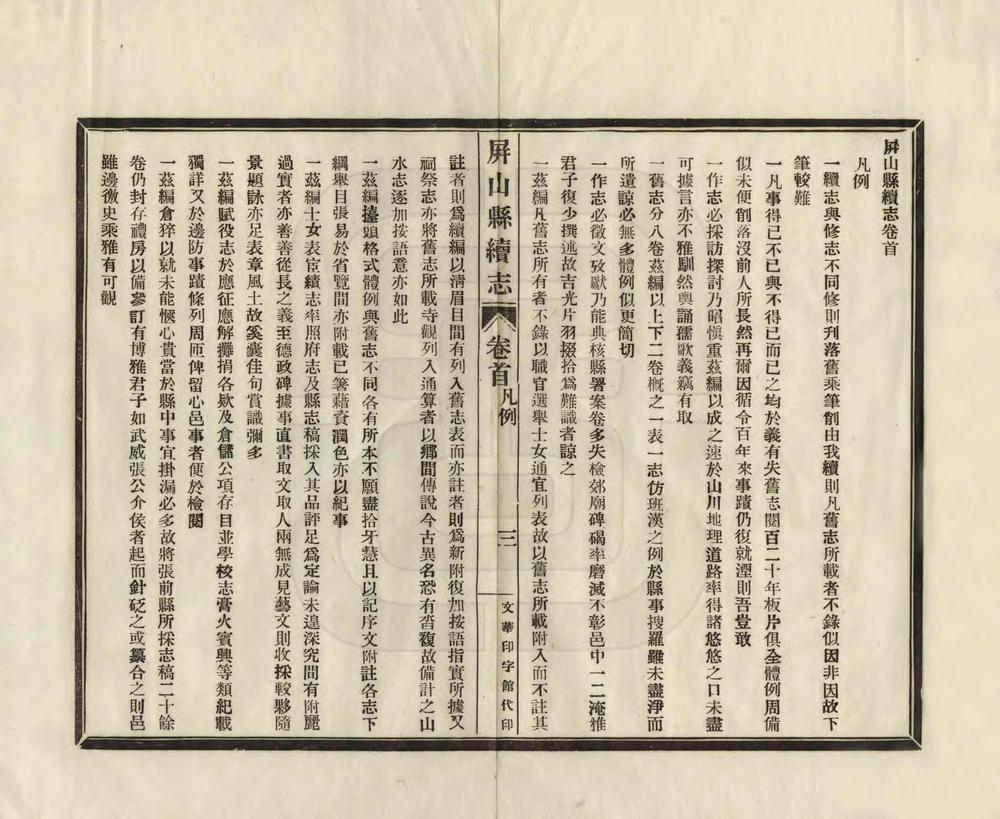 屏山縣續志卷首
凡例
一續志與修志不同修則刋落舊乘筆削由我續則凡舊志所載者不錄似因非因故下
筆較難
一凡事得已不已與不得已而已之均於義有失舊志閱百二十年板片俱全體例周備
似未便削落沒前人所長然再爾因循令百年來事蹟仍復就湮則吾豈敢
一作志必採訪探討乃昭愼重茲編以成之速於山川地理道路率得諸悠悠之口未盡
可據言亦不雅馴然輿誦孺歌義竊有取
一舊志分八卷茲編以上下二卷槪之一表一志仿班漢之例於縣事搜羅雖未盡淨而
所遺諒必無多體例似更簡切
一作志必徵文攷獻乃能典核縣署案卷多失檢郊廟碑碣率磨滅不彰邑中一二淹雅
君子復少撰述故吉光片羽掇拾爲難識者諒之
一茲編凡舊志所有者不錄以職官選舉士女通宜列表故以舊志所載附入而不註其
屏山縣續志 卷首凡例 三 文華印字館代印
註者則爲續編以淸眉目間有列入舊志表而亦註者則爲新附復加按語指實所據又
祠祭志亦將舊志所載寺觀列入通算者以鄉間傳說今古異名恐有沓複故備計之山
水志逐加按語意亦如此
一茲編擡頭格式體例與舊志不同各有所本不願盡拾牙慧且以記序文附註各志下
綱舉目張易於省覽間亦附載已箸藉資潤色亦以紀事
一茲編士女表宦績志率照府志及縣志稿採入其品評足爲定論未遑深究間有附麗
過實者亦善善從長之義至德政碑據事直書取文取人兩無成見藝文則收採較夥隨
景題詠亦足表章風土故奚囊佳句賞識彌多
一茲編賦役志於應征應解攤捐各欵及倉儲公項存目並學校志膏火賓興等類紀載
獨詳又於邊防事蹟條列周匝俾留心邑事者便於檢閱
一茲編倉猝以就未能愜心貴當於縣中事宜掛漏必多故將張前縣所採志稿二十餘
卷仍封存禮房以備參訂有博雅君子如武威張公介侯者起而針砭之或纂合之則邑
雖邊徼史乘雅有可觀